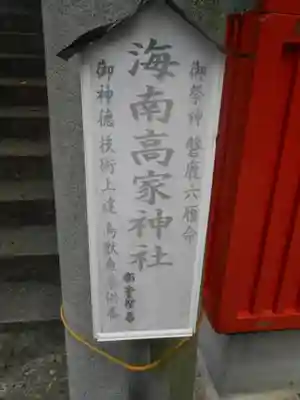 御祭神 磐鹿六雁命
海南高家神社
御神徳 技術上達 鳥獣魚等供養